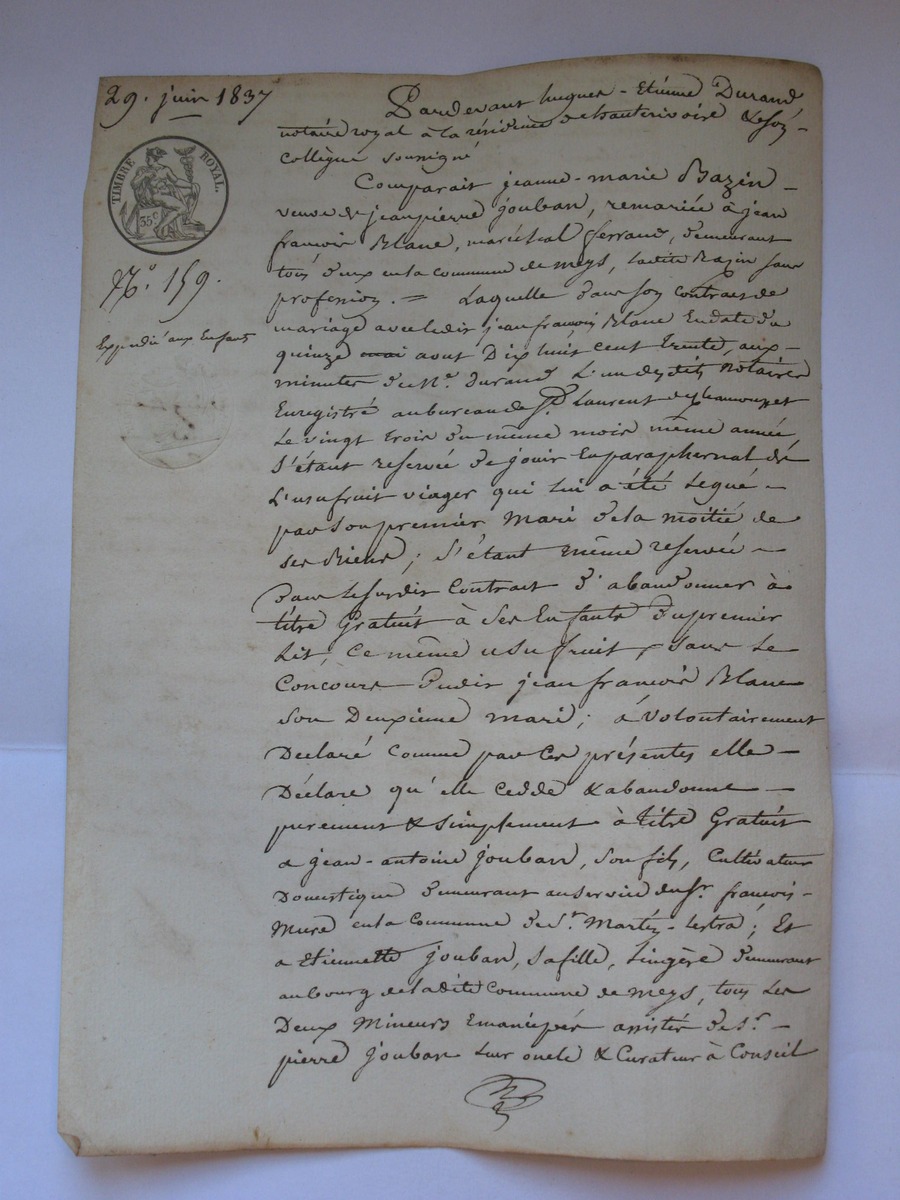 29. juin 1837
TIMBRE ROYAL.
35 c
N.o 159.
Expedié aux Enfants
Pardevant hugues-Etienne Durand
notaire royal à la résidence de hauterivoire & son
Collègue soussigné
Comparait jeanne-marie Bazin
veuve de jean pierre jouban, remariée à jean
françois Blanc, maréchal ferrand, demeurant
tous deux en la commune de meys, ladite Bazin sans
profession. = Laquelle dans son contrat de
mariage avec ledit jean françois Blanc En date du
quinze mai aout Dix huit cent trente, aux
minutes de Me. durand L'un desdits Notaires
Enregistré au bureau de St Laurent de Chamousset
Le vingt trois du même mois même année
S'étant reservée de jouir En paraphernal de
L'usufruit viager qui lui a été Legué
par son premier Mari de la moitié de
ses Biens; S'étant même reservée
dans le susdit Contrat d'abandonner à
titre Gratuit à ses Enfants du premier
Lit, Ce même usufruit, sans Le
Concours dudit jean françois Blanc
son Deuxième mari; à volontairement
Déclaré Comme par Ces présentes elle
Déclare qu'elle cedde & abandonne
purement & simplement à titre Gratuit
a jean-antoine jouban, son fils, Cultivateur
Domestique demeurant au service du Sr. françois
Mure en la Commune de St. Martin-Lestra; Et
a Etiennette jouban, sa fille, Lingère demeurant
au bourg de ladite Commune de Meys, tous Les
Deux Mineurs Emancipés assistés de Sr.
pierre jouban leur oncle & Curateur à Conseil